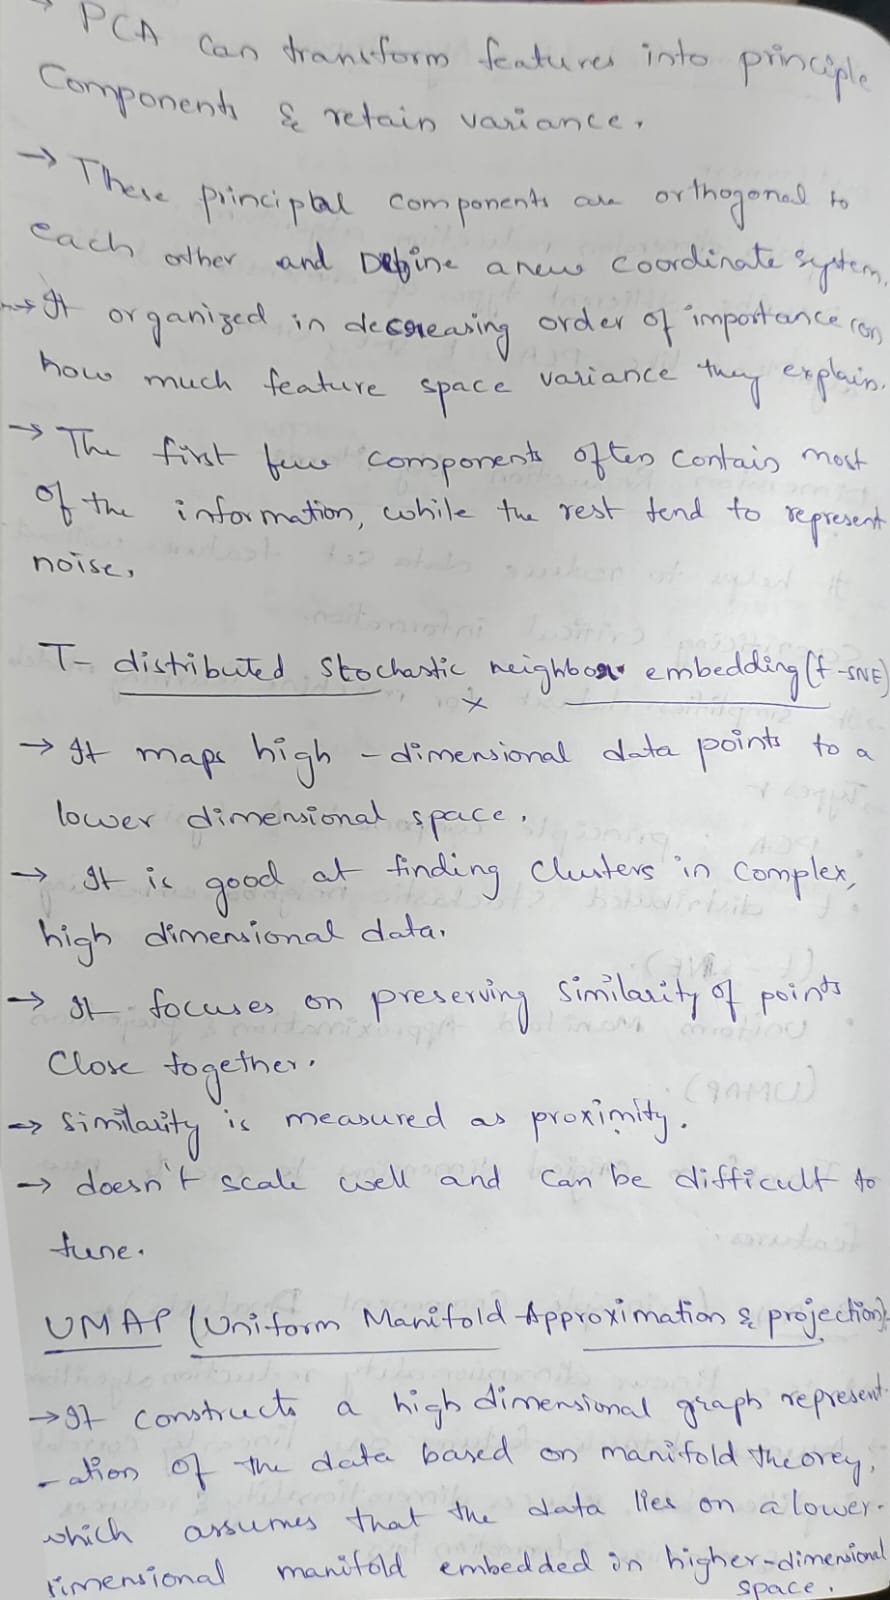 → PCA can transform features into principle
Components & retain variance.
→ These principal components are orthogonal to
each other and Define a new coordinate system.
→ It organized in decreasing order of importance on
how much feature space variance they explain.
→ The first few components often contain most
of the information, while the rest tend to represent
noise.
T- distributed Stochastic neighbor embedding (t-SNE)
→ It maps high - dimensional data points to a
lower dimensional space.
→ It is good at finding Clusters in Complex,
high dimensional data.
→ It focuses on preserving Similarity of points
Close together.
→ Similarity is measured as proximity.
→ doesn't scale well and can be difficult to
tune.
UMAP (Uniform Manifold Approximation & projection).
→ It constructs a high dimensional graph represent
-ation of the data based on manifold theorey,
which assumes that the data lies on a lower-
dimensional manifold embedded in higher-dimensional
space.